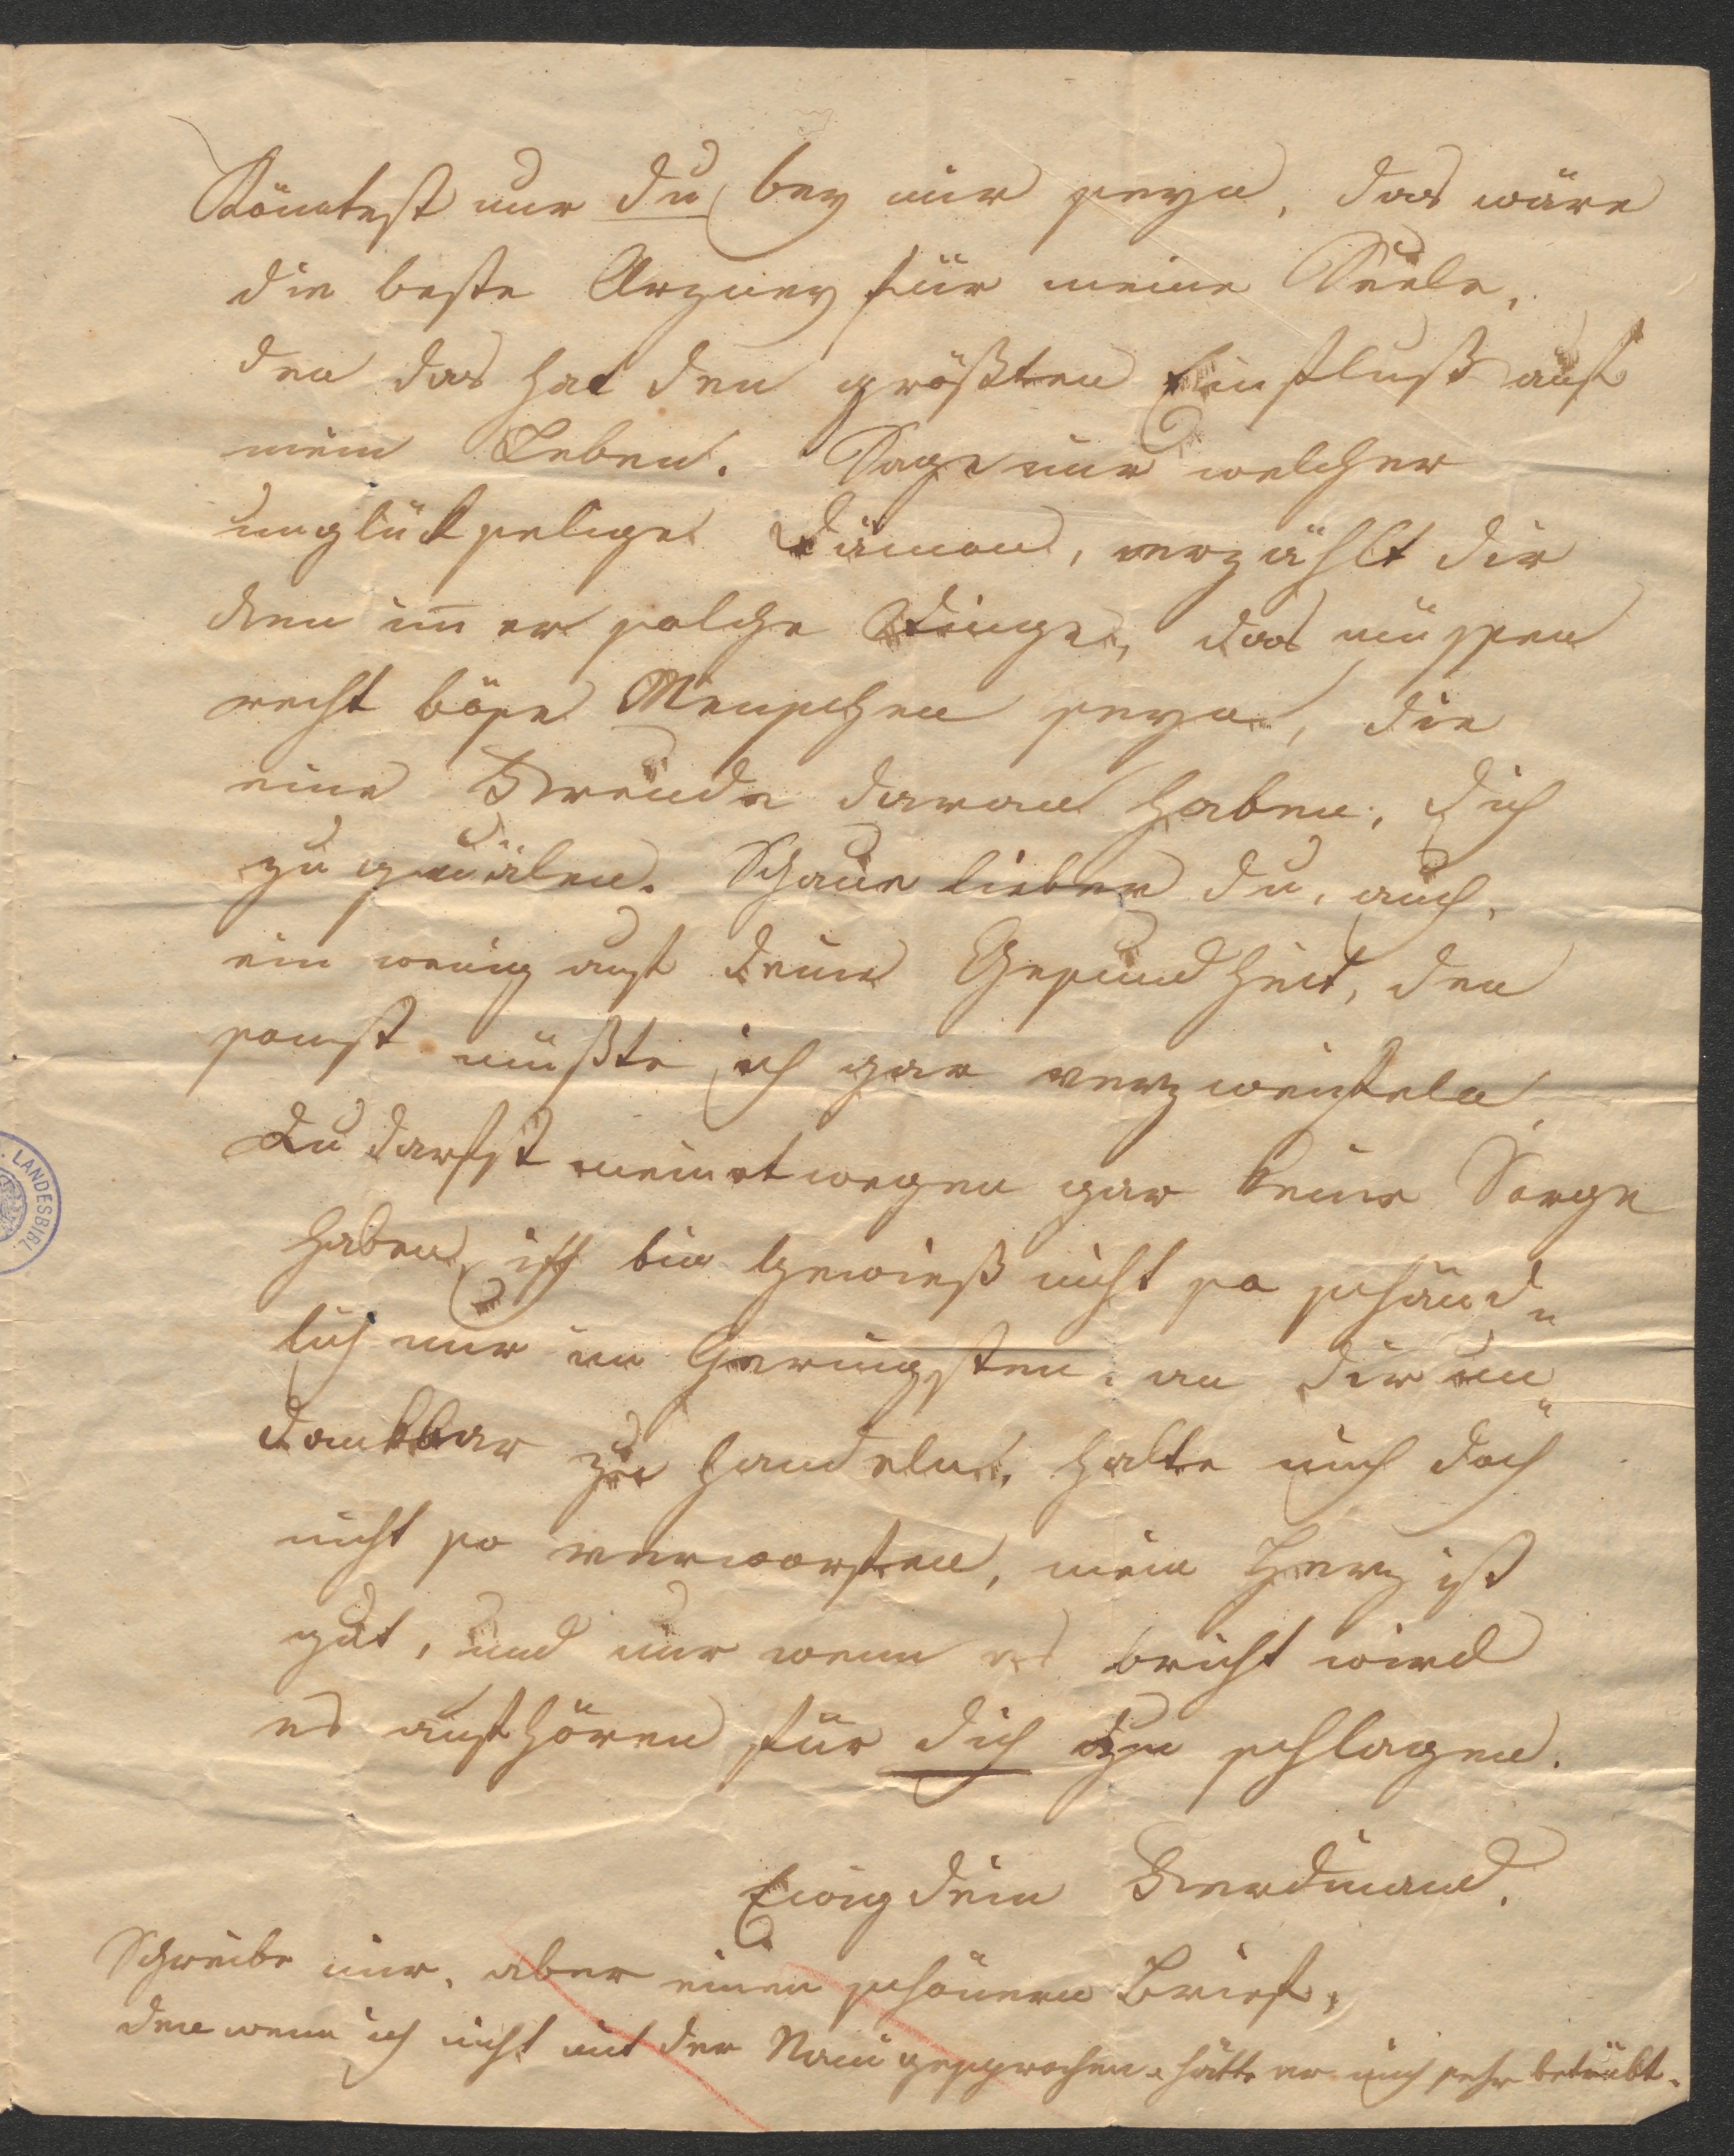 Könntest nur du bey mir seyn, das wäre
die beste Arzney für meine Seele,
den das hat den größten Einfluß auf
mein Leben. Sage nur welcher
unglükselige Dämon, verzählt dir
den im̄er solche Dinge, das müssen
recht böse Menschen seyn, die
eine Freude daran haben, dich
zu quälen. Schaue lieber du, auch,
ein wenig auf deine Gesundheit, den
sonst müßte ich gar verzweifeln,
Du darfst meinetwegen gar keine Sorge
haben, ich bin gewieß nicht so schänd„
lich nur im Geringsten, an dir un„
dankbar zu handeln, halte mich doch
nicht so verworfen, mein Herz ist
gut, und nur wenn es bricht wird
es aufhören für dich zu schlagen.
Ewig dein Ferdinand.
Schreibe mir, aber einen schönern Brief,
den wenn ich nicht mit der Nani gesprochen, hätte er mich sehr betrübt.
LANDESBIBL.